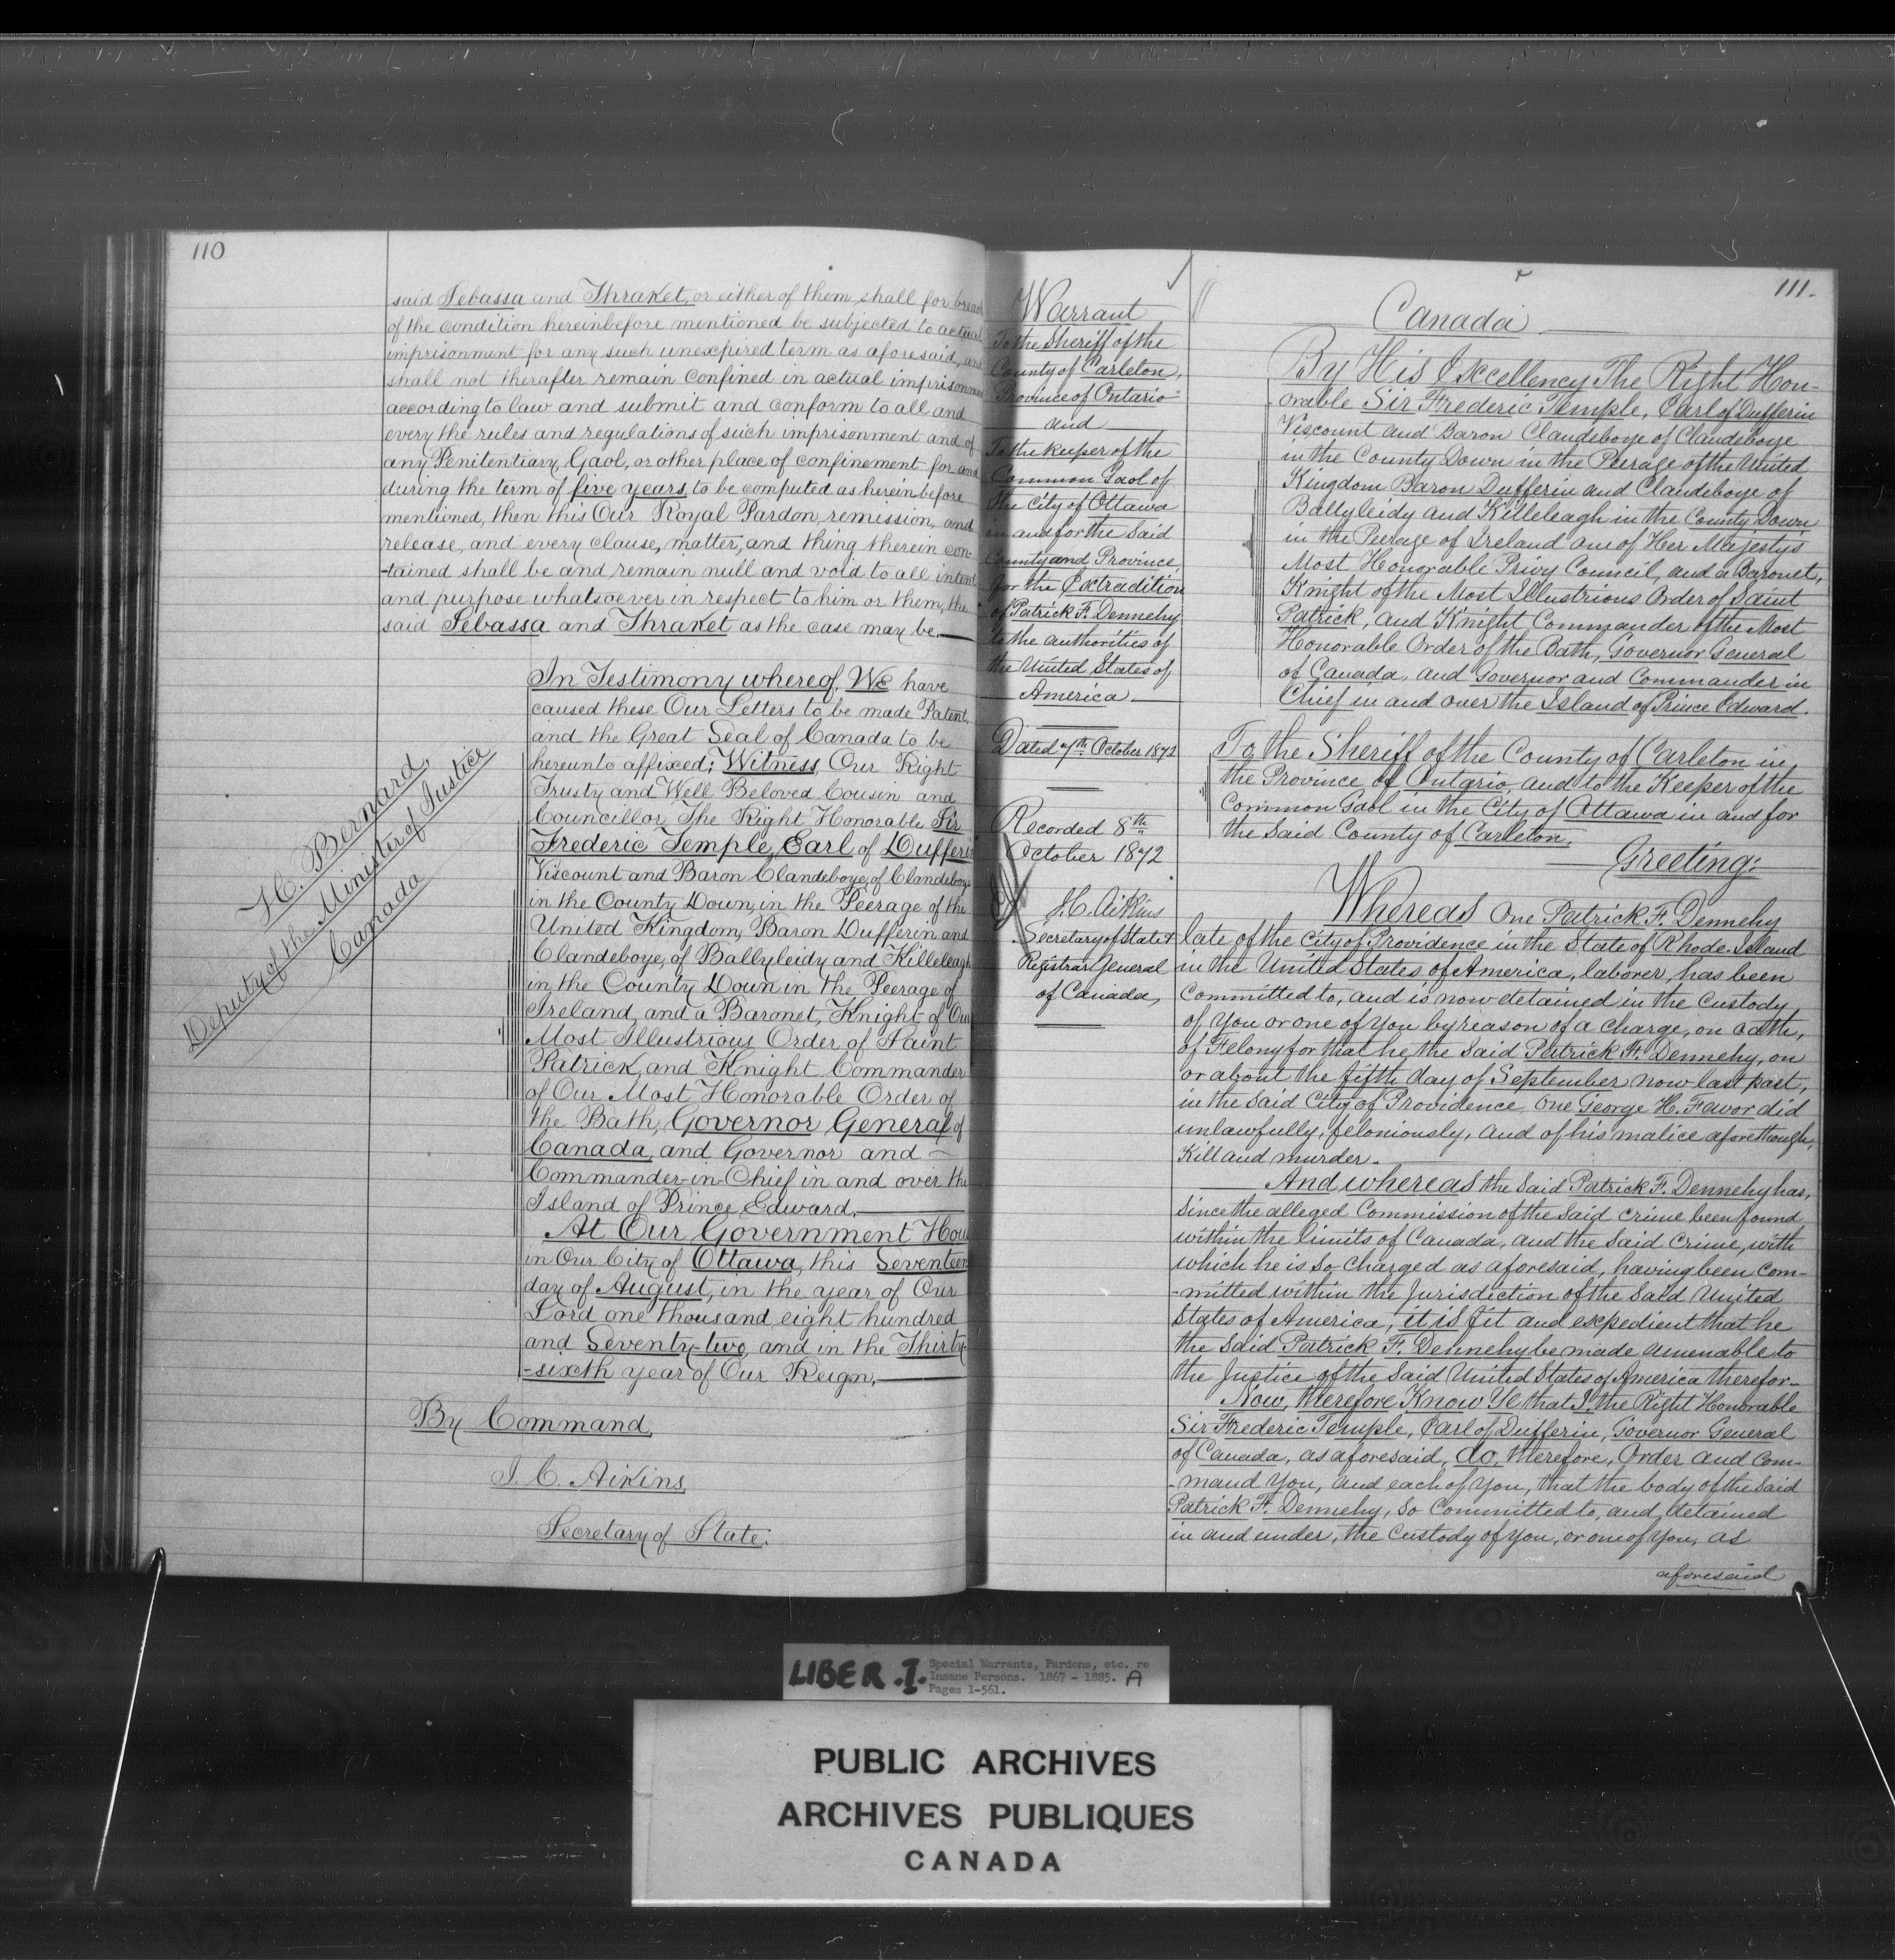 110
said Sebassa and Thraket, or either of them shall for breach
of the condition hereinbefore mentioned be subjected to actual
imprisonment for any such unexpired term as aforesaid, and
shall not therafter remain confined in actual imprisonmen
according to law and submit and conform to all and
every the rules and regulations of such imprisonment and of
any Penitentiary, Gaol, or other place of confinement for and
during the term of five years, to be computed as hereinbefore
mentioned, then this Our Royal Pardon, remission, and
release, and every clause, matter, and thing therein con-
-tained shall be and remain null and void to all intent
and purpose whatsoever in respect to him or them, the
said Sebassa and Thraket as the case may be.
In Testimony whereof, We have
caused these Our Letters to be made Patent,
and the Great Seal of Canada to be
hereunto affixed; Witness, Our Right
Trusty and Well Beloved Cousin and
Councillor, The Right Honorable Sir
Frederic Temple, Earl of Dufferi
Viscount and Baron Clandeboye, of Clandeboye
in the County Down, in the Peerage of the
United Kingdom, Baron Dufferin and
Clandeboye, of Ballyleidy and Killeleagh
in the County Down in the Peerage of
Ireland, and a Baronet, Knight of Our
Most Illustrious Order of Saint
Patrick, and Knight Commander
of Our Most Honorable Order of
the Bath, Governor General of
Canada, and Governor and
Commander-in-Chief in and over the
Island of Prince Edward.
At Our Government Hou
in Our City of Ottawa, this Seventeen
day of August, in the year of Our
Lord one thousand, eight hundred
and Seventy-two, and in the Thirty-
-sixth year of Our Reign.
By Command,
J. C. Aikins,
Secretary of State.
H. Bernard,
Deputy of the Minister of Justice
Canada
111.
Warrant
To the Sheriff of the
County of Carleton,
Province of Ontario
and
To the keeper of the
Common Gaol of
the City of Ottawa
in and for the Said
County and Province,
for the Extradition
of Patrick F. Dennehy
to the authorities of
the United States of
America.
Dated 7th October 1872
Recorded 8th
October 1872
J.C. Aikins
Secretary of State &
Registrar General
of Canada,
Canada
By His Excellency The Right Hon-
-orable Sir Frederic Temple, Earl of Dufferin
Viscount and Baron Clandeboye of Clandeboye
in the County Down in the Peerage of the United
Kingdom Baron Dufferin and Clandeboye of
Ballyleidy and Killeleagh in the County Down
in the Peerage of Ireland one of Her Majesty's
Most Honorable Privy Council, and a Baronet,
Knight of the Most Illustrious Order of Saint
Patrick, and Knight Commander of the Most
Honorable Order of the Bath, Governor General
of Canada, and Governor and Commander in
Chief in and over the Island of Prince Edward.
To the Sheriff of the County of Carleton in
the Province of Ontario, and to the Keeper of the
Common Gaol in the City of Ottawa in and for
the Said County of Carleton.
Greeting:
Whereas One Patrick F. Dennehy
late of the City of Providence in the State of Rhode-Island
in the United States of America, laborer, has been
Committed to, and is now detained in the Custody
of you or one of you by reason of a Charge, on oath,
of Felony for that he the Said Patrick F. Dennehy, on
or about the fifth day of September now last past,
in the Said City of Providence One George H. Favor did
unlawfully, feloniously, and of his malice aforethough,
Kill and murder.
And whereas the Said Patrick F. Dennehy has,
Since the alleged Commission of the Said Crime been found,
within the limits of Canada, and the Said Crime, with
which he is so Charged as aforesaid, having been Com-
-mitted within the Jurisdiction of the Said United
States of America, it is fit and expedient that he
the Said Patrick F. Dennehy be made amenable to
the Justice of the Said United States of America therefor.
Now, therefore Know Ye that I, the Right Honorable
Sir Frederic Temple, Earl of Dufferin, Governor General
of Canada, as aforesaid, do, therefore, Order and Com-
-mand You, and each of You, that the body of the Said
Patrick F. Dennehy, So Committed to, and detained
in and under, the Custody of you, or one of you, as
aforesaid
LIBER. I. Special Warrants, Pardons, etc. re
Insane Persons. 1867 - 1885. A
Pages 1-561.
PUBLIC ARCHIVES
ARCHIVES PUBLIQUES
CANADA